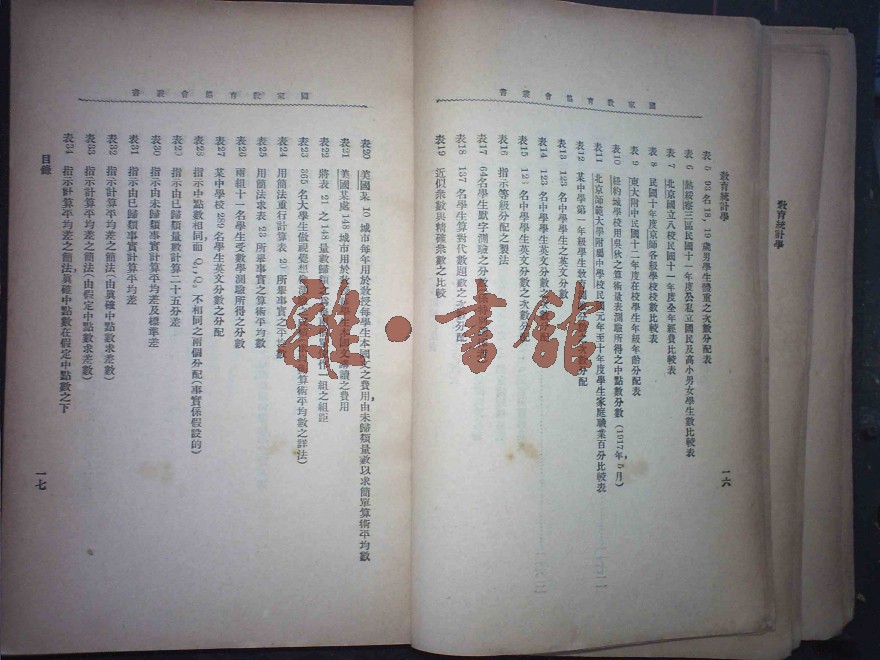 教育統計學
國家教育協會叢書
教育統計學
一六
表 5 93名18, 19歲男學生體重之次數分配表
三區民國十一年度公私立國民及高小男女學生數比較表
表 7 北京國立八校民國十一年度全年經費比較表
表 8 民國十年度京師各級學校校數比較表
表 9 東大附中民國十二年度在校學生年級年齡分配表
表10 紐約城學校用吳秋之算術量表測驗所得之中點數分數 (1917年, 5月)
表11 北京師範大學附屬中學校民國元年至十年度學生家庭職業百分比較表
表12 某中學第一年級學生教育測驗分數之次數分配
表13 123 名中學學生之英文分數
表14 123 名中學學生英文分數之次數分配
表15 123 名中學學生英文分數之次數分配
表16 指示等級分配之製法
表17 64名學生默字測驗之分數
表18 137 名學生算對代數題數之次數分配
表19 近似衆數與精確衆數之比較
國家教育協會叢書
表20 美國某 10 城市每年用於教授每學生本國文之費用, 由未歸類量數以求簡單算術平均數
表21 美國某處 148 城市用於教授每學生國文講讀之費用
表22 將表 21 之 148 量數歸類一組之組距
表23 365 名大學生做視覺想像算術平均數之詳法)
表24 用簡法重行計算表 23 所舉事實之平均數
表25 用簡法求表 23 所舉事實之算術平均數
表26 兩組十一名學生受數學測驗所得之分數
表27 某中學校 289 名學生英文分數之次數分配
表28 指示中點數相同而 Q₁, Q₃ 不相同之兩個分配(事實係假設的)
表29 指示由已歸類量數計算二十五分差
表30 指示由未歸類事實計算平均差及標準差
表31 指示由已歸類事實計算平均差
表32 指示計算平均差之簡法(由眞確中點數求差數)
表33 指示計算平均差之簡法(由假定中點數求差數)
表34 指示計算平均差之簡法, 眞確中點數在假定中點數之下
目錄
一七
雜·書館